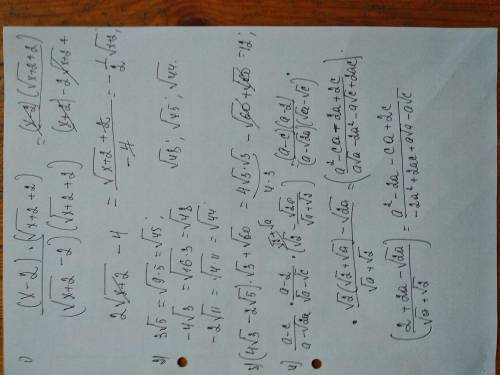 1) \frac{(x-2)·(\sqrt{x+2}+2)}{(\sqrt{x+2}-2)(\sqrt{x+2}+2)} = \frac{(x-2)(\sqrt{x+2}+2)}{(x+2)-2\sqrt{x+2}+
2\sqrt{x+2}-4 = \frac{\sqrt{x+2}+2}{-4} = -\frac{1}{2}\sqrt{x+2};
2) 3\sqrt{5} = \sqrt{9·5} = \sqrt{45};
-4\sqrt{3} = \sqrt{16·3} = \sqrt{48} \sqrt{48}; \sqrt{45}; \sqrt{44}.
-2\sqrt{11} = \sqrt{4·11} = \sqrt{44}
3) (4\sqrt{3}-2\sqrt{5})·\sqrt{3}+\sqrt{60} = 4\sqrt{3}·\sqrt{3}-\sqrt{60}+\sqrt{60} = 12;
4·3
4) \frac{a-c}{a-\sqrt{2a}} · \frac{a-2}{\sqrt{a}-\sqrt{c}} · (\sqrt{2}-\frac{\sqrt{2a}}{\sqrt{a}+\sqrt{2}}) = \frac{(a-c)(a-2)}{(a-\sqrt{2a})(\sqrt{a}-\sqrt{c})} ·
· \frac{\sqrt{2}(\sqrt{2}+\sqrt{a})-\sqrt{2a}}{\sqrt{a}+\sqrt{2}} = (\frac{a²-ca+2a+2c}{a\sqrt{a}-2a²-a\sqrt{c}+2ac}) ·
(\frac{2+\sqrt{2a}-\sqrt{2a}}{\sqrt{a}+\sqrt{2}}) = \frac{a²-2a-ca+2c}{-2a²+2ac+a\sqrt{a}-a\sqrt{c}}